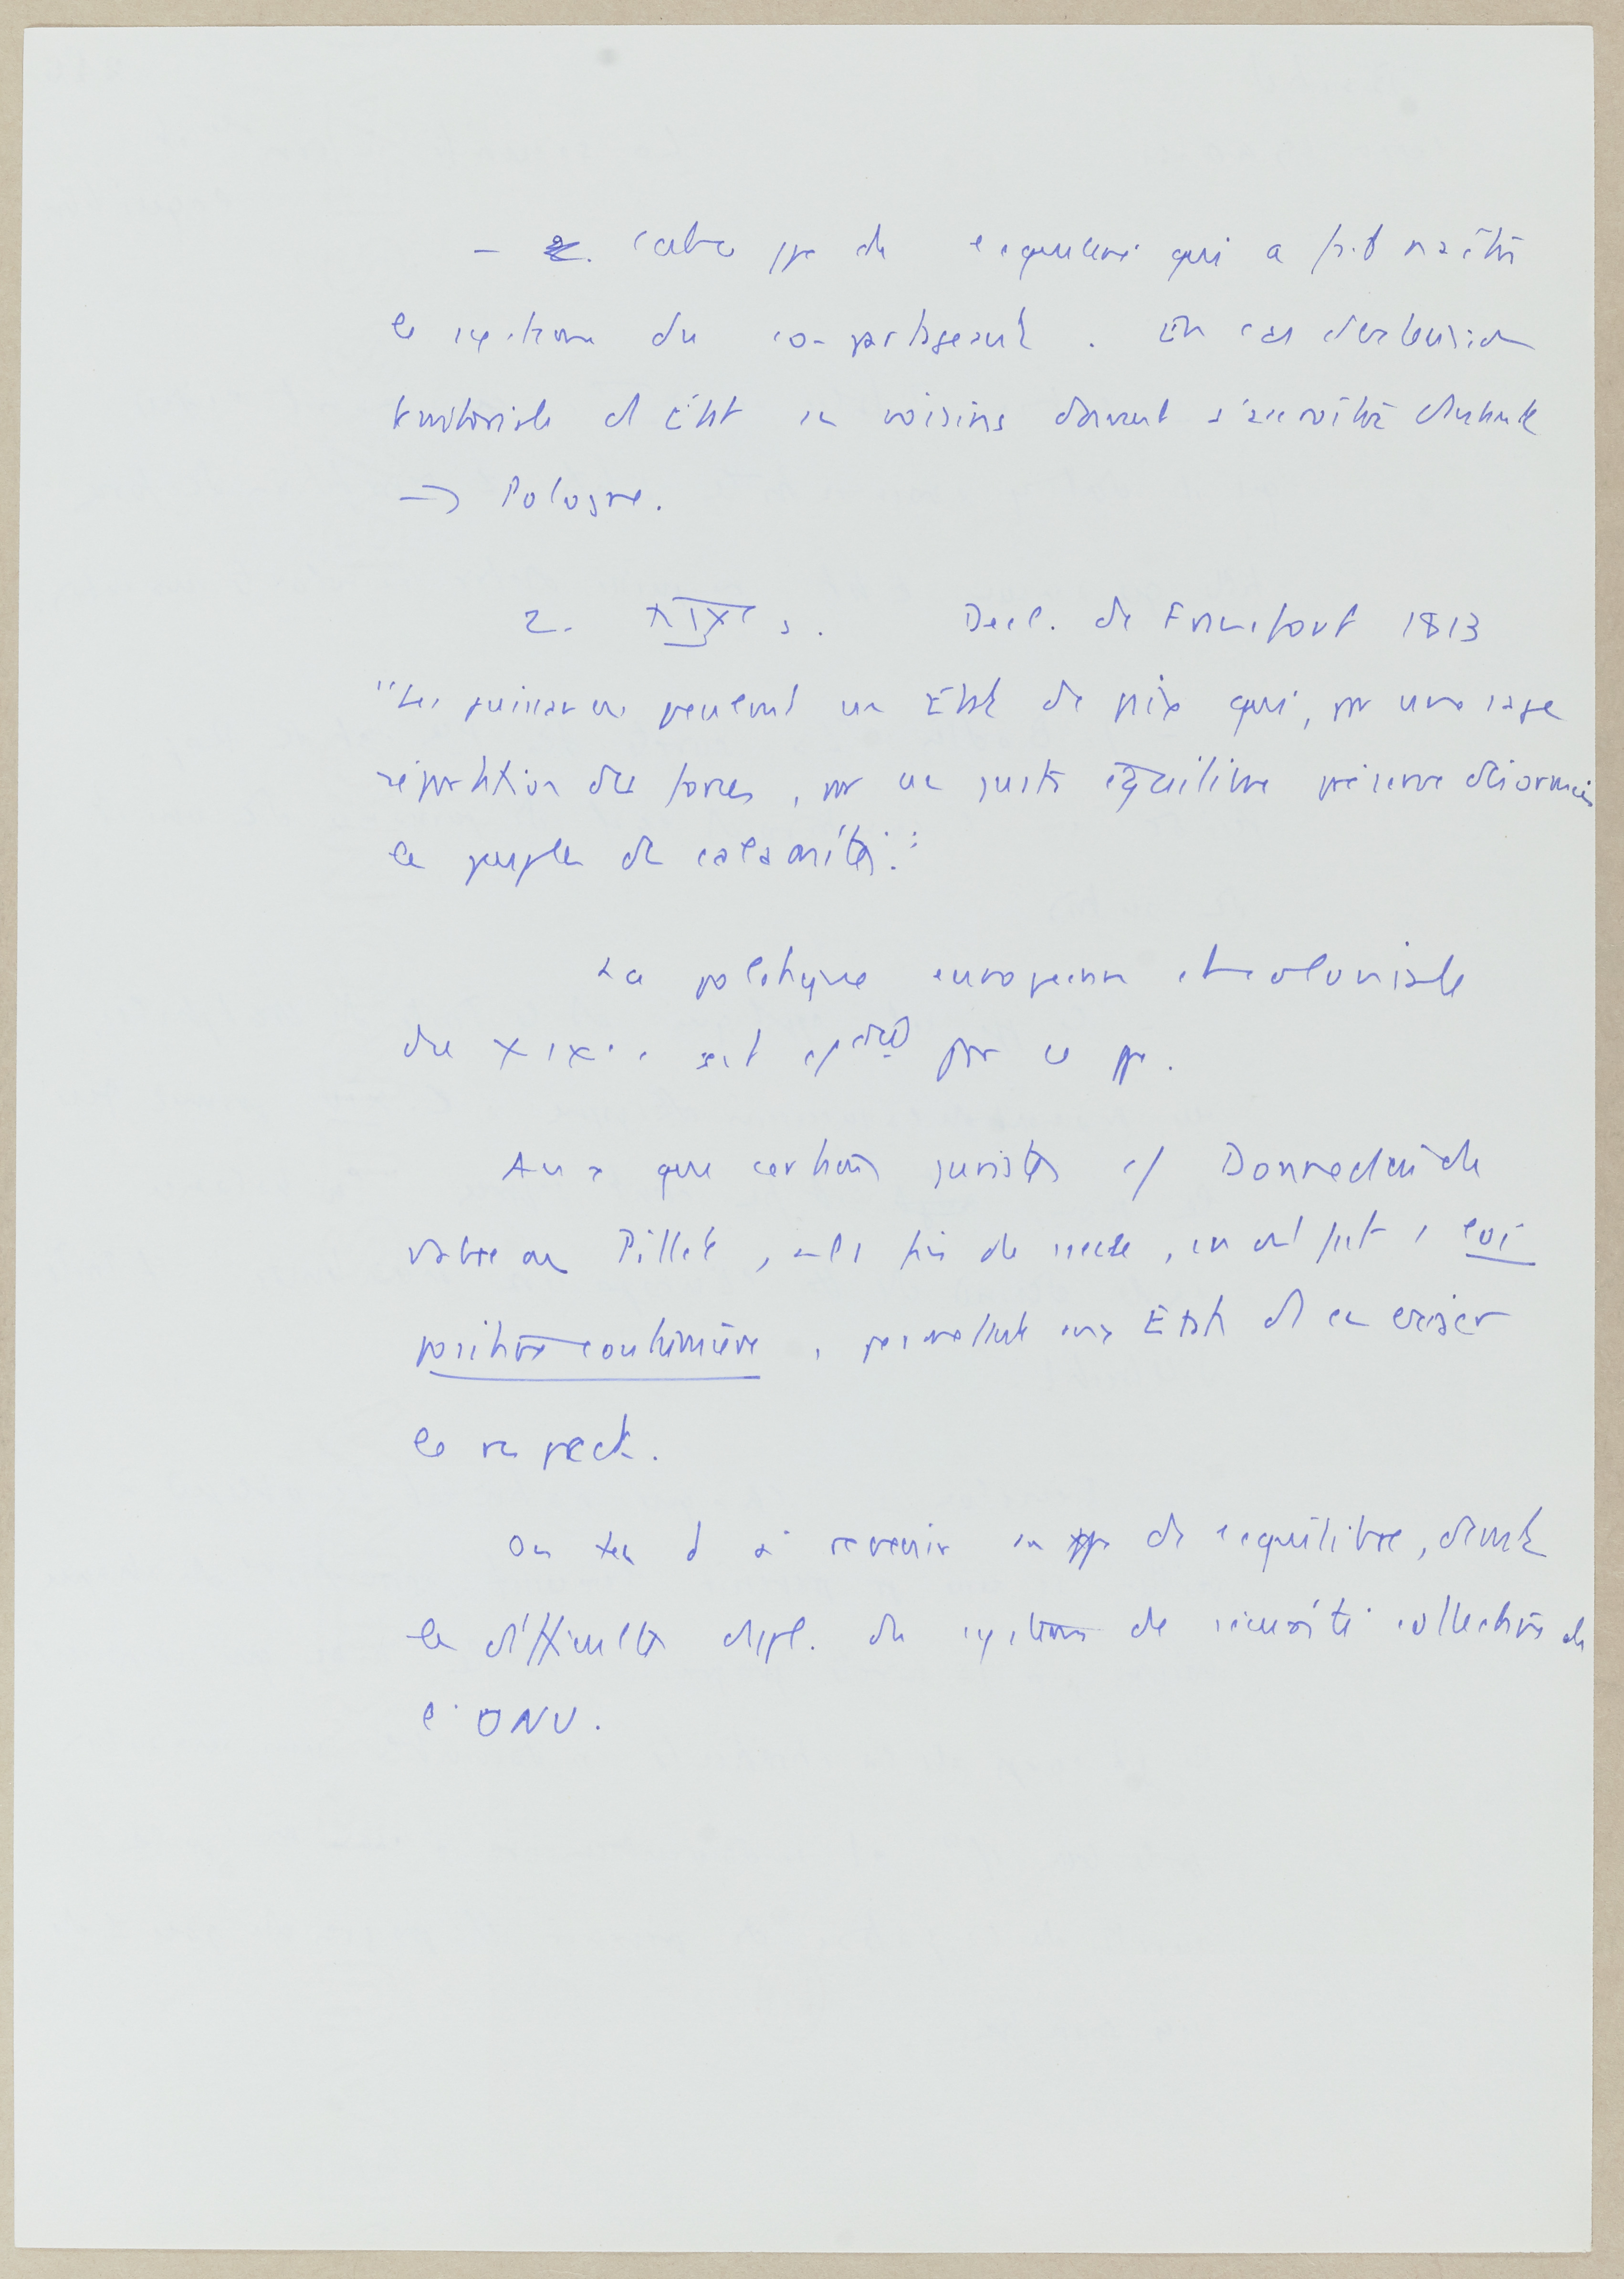 - c'est le ppe de l'équilibre qui a fait naître
le système du copartageant. En cas d'extension
territoriale d'État les voisins doivent s'accroître d'autant
→ Pologne.
2. XIXe s. Decl. de Francfort 1813
"Les puissances veulent un État de paix qui, par une sage
répartition des forces, par un juste équilibre préserve désormais
les peuples de calamités."
La politique européenne et coloniale
du XIXe s est par ce ppe.
Au que certains juristes c/ Donnedieu de
Vabre ou Pillet, à la fin de siècle, en ont fait 1 loi
positive coutumière, permettant aux États d'en exiger
le respect.
On tend à revenir au ppe de l'équilibre, devant
les difficultés du système de sécurité collective de
l'ONU.